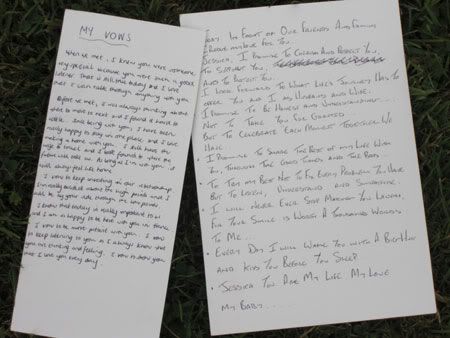 MY VOWS
When we met, I knew you were someone
very special because you were such a good
listener. That is still true today and I love
that I can talk through anything with you.
Before we met, I was always thinking about
what to do next and found it hard to
settle. Since being with you, I have been
really happy to stay in one place and I love
making a home with you. I still have the
urge to travel and I look forward to where the
future will take us. As long as I'm with you, it
will always feel like home.
I vow to keep investing in our relationship.
I'm really excited about the high points and I
will be by your side through the low points.
I know that today is really important to us
and I am so happy to be here with you in
I vow to be more patient with you. I vow
to keep listening to you so I always know what
you are thinking and feeling. I vow to show you
that I love you every day.
Today In Front of Our Friends And Family
I Pledge my Love For You.
Jessica, I Promise To Cherish And Respect You,
To Support You
And To Protect You.
I Look Forward To What Life's Journey Has To
offer You And I As Husband And Wife.
I Promise To Be Honest And Understanding...
Not To Take You For Granted...
But To Celebrate Each Moment Together We
Have.
I Promise To Share The Rest of My Life With
You, Through The Good Times And The Bad...
To Try My Best Not To Fix Every Problem You Have
But To Listen, Understand and Sympathise.
I Will Never Ever Stop Making You Laugh,
For Your Smile Is Worth A Thousand Words
To Me...
Every Day I Will Wake You With A Big Hug
And Kiss You Before You Sleep
Jessica You Are My Life My Love
My Baby.....